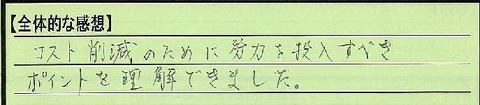 【全体的な感想】
コスト削減のために労力を投入すべき
ポイントを理解できました。